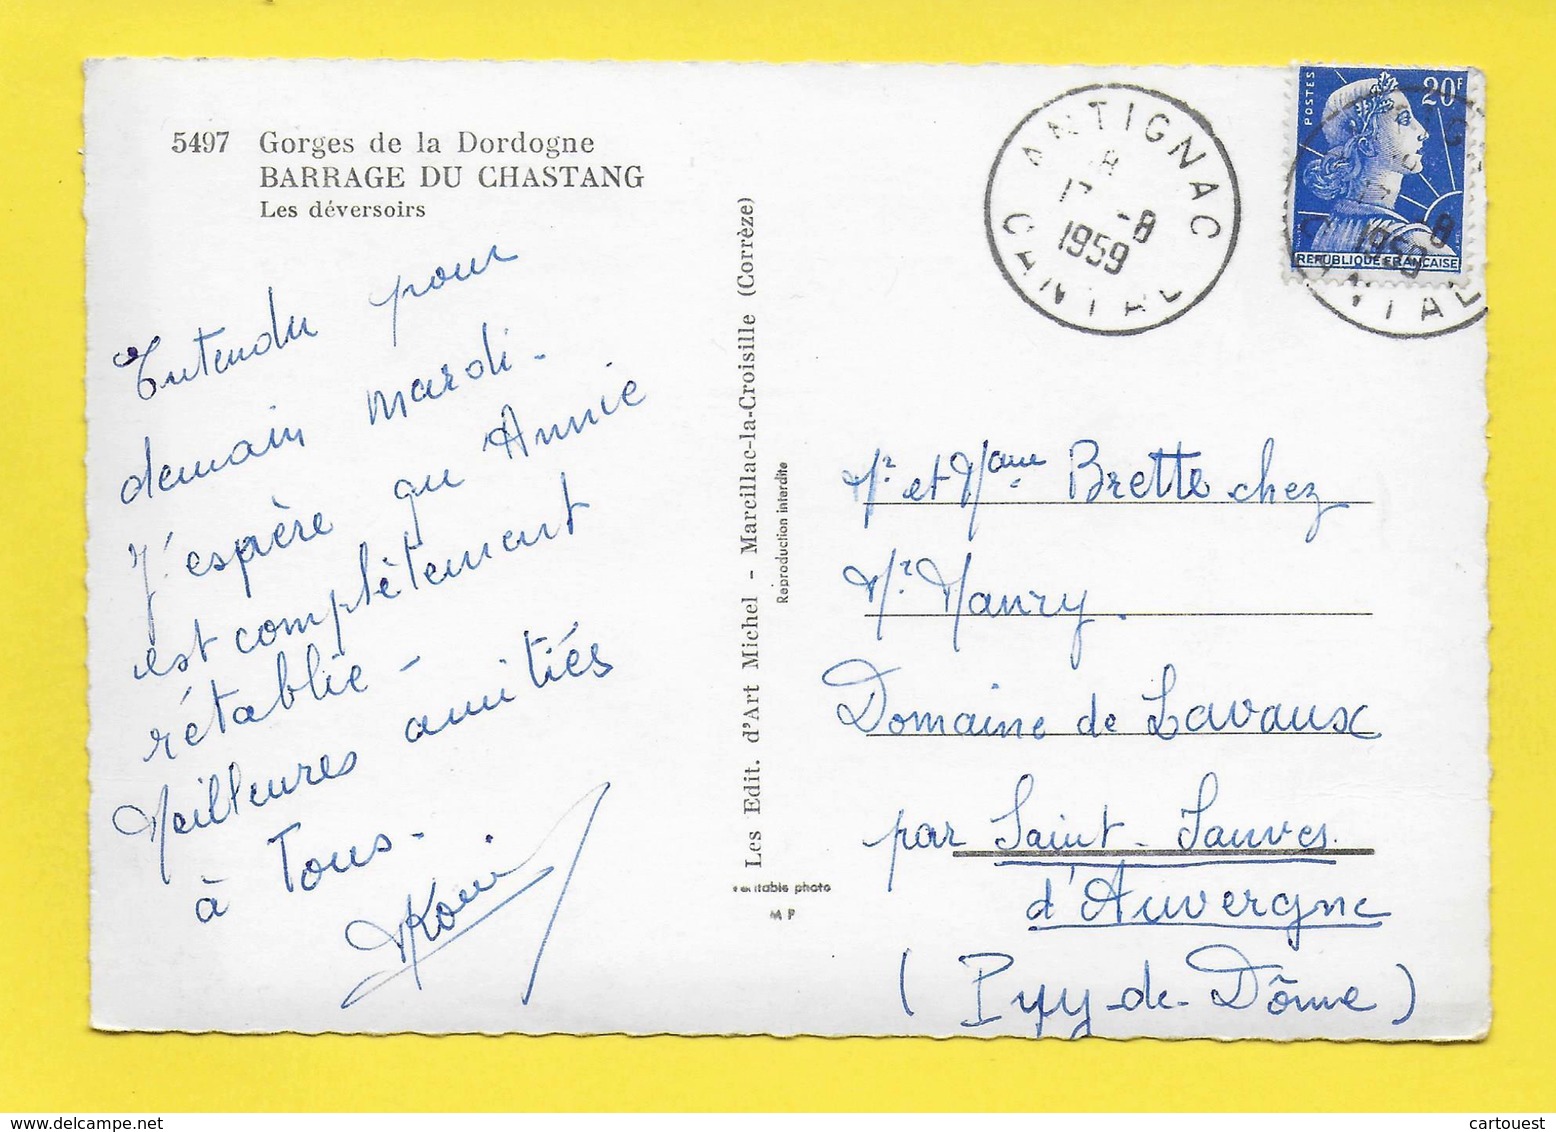 5497 Gorges de la Dordogne
BARRAGE DU CHASTANG
Les déversoirs
Entendu pour
demain mardi -
J'espère qu Annie
est complètement
rétablie -
Meilleures amitiés
à Tous -
Les Edit. d'Art Michel - Marcillac-la-Croisille (Corrèze)
Reproduction interdite
Véritable photo
M P
ANTIGNAC
18
17 -8
1959
CANTAL
POSTES
20F
REPUBLIQUE FRANCAISE
-8
1959
CANTAL
Mr et Mame Brette chez
Mr Manry.
Domaine de Lavaux
par Saint-Sauves.
d'Auvergne
(Puy-de-Dôme)
cartouest